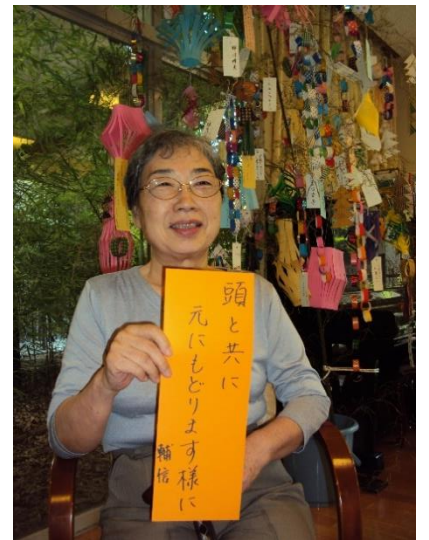 頭と共に
元にもどります様に
輔信